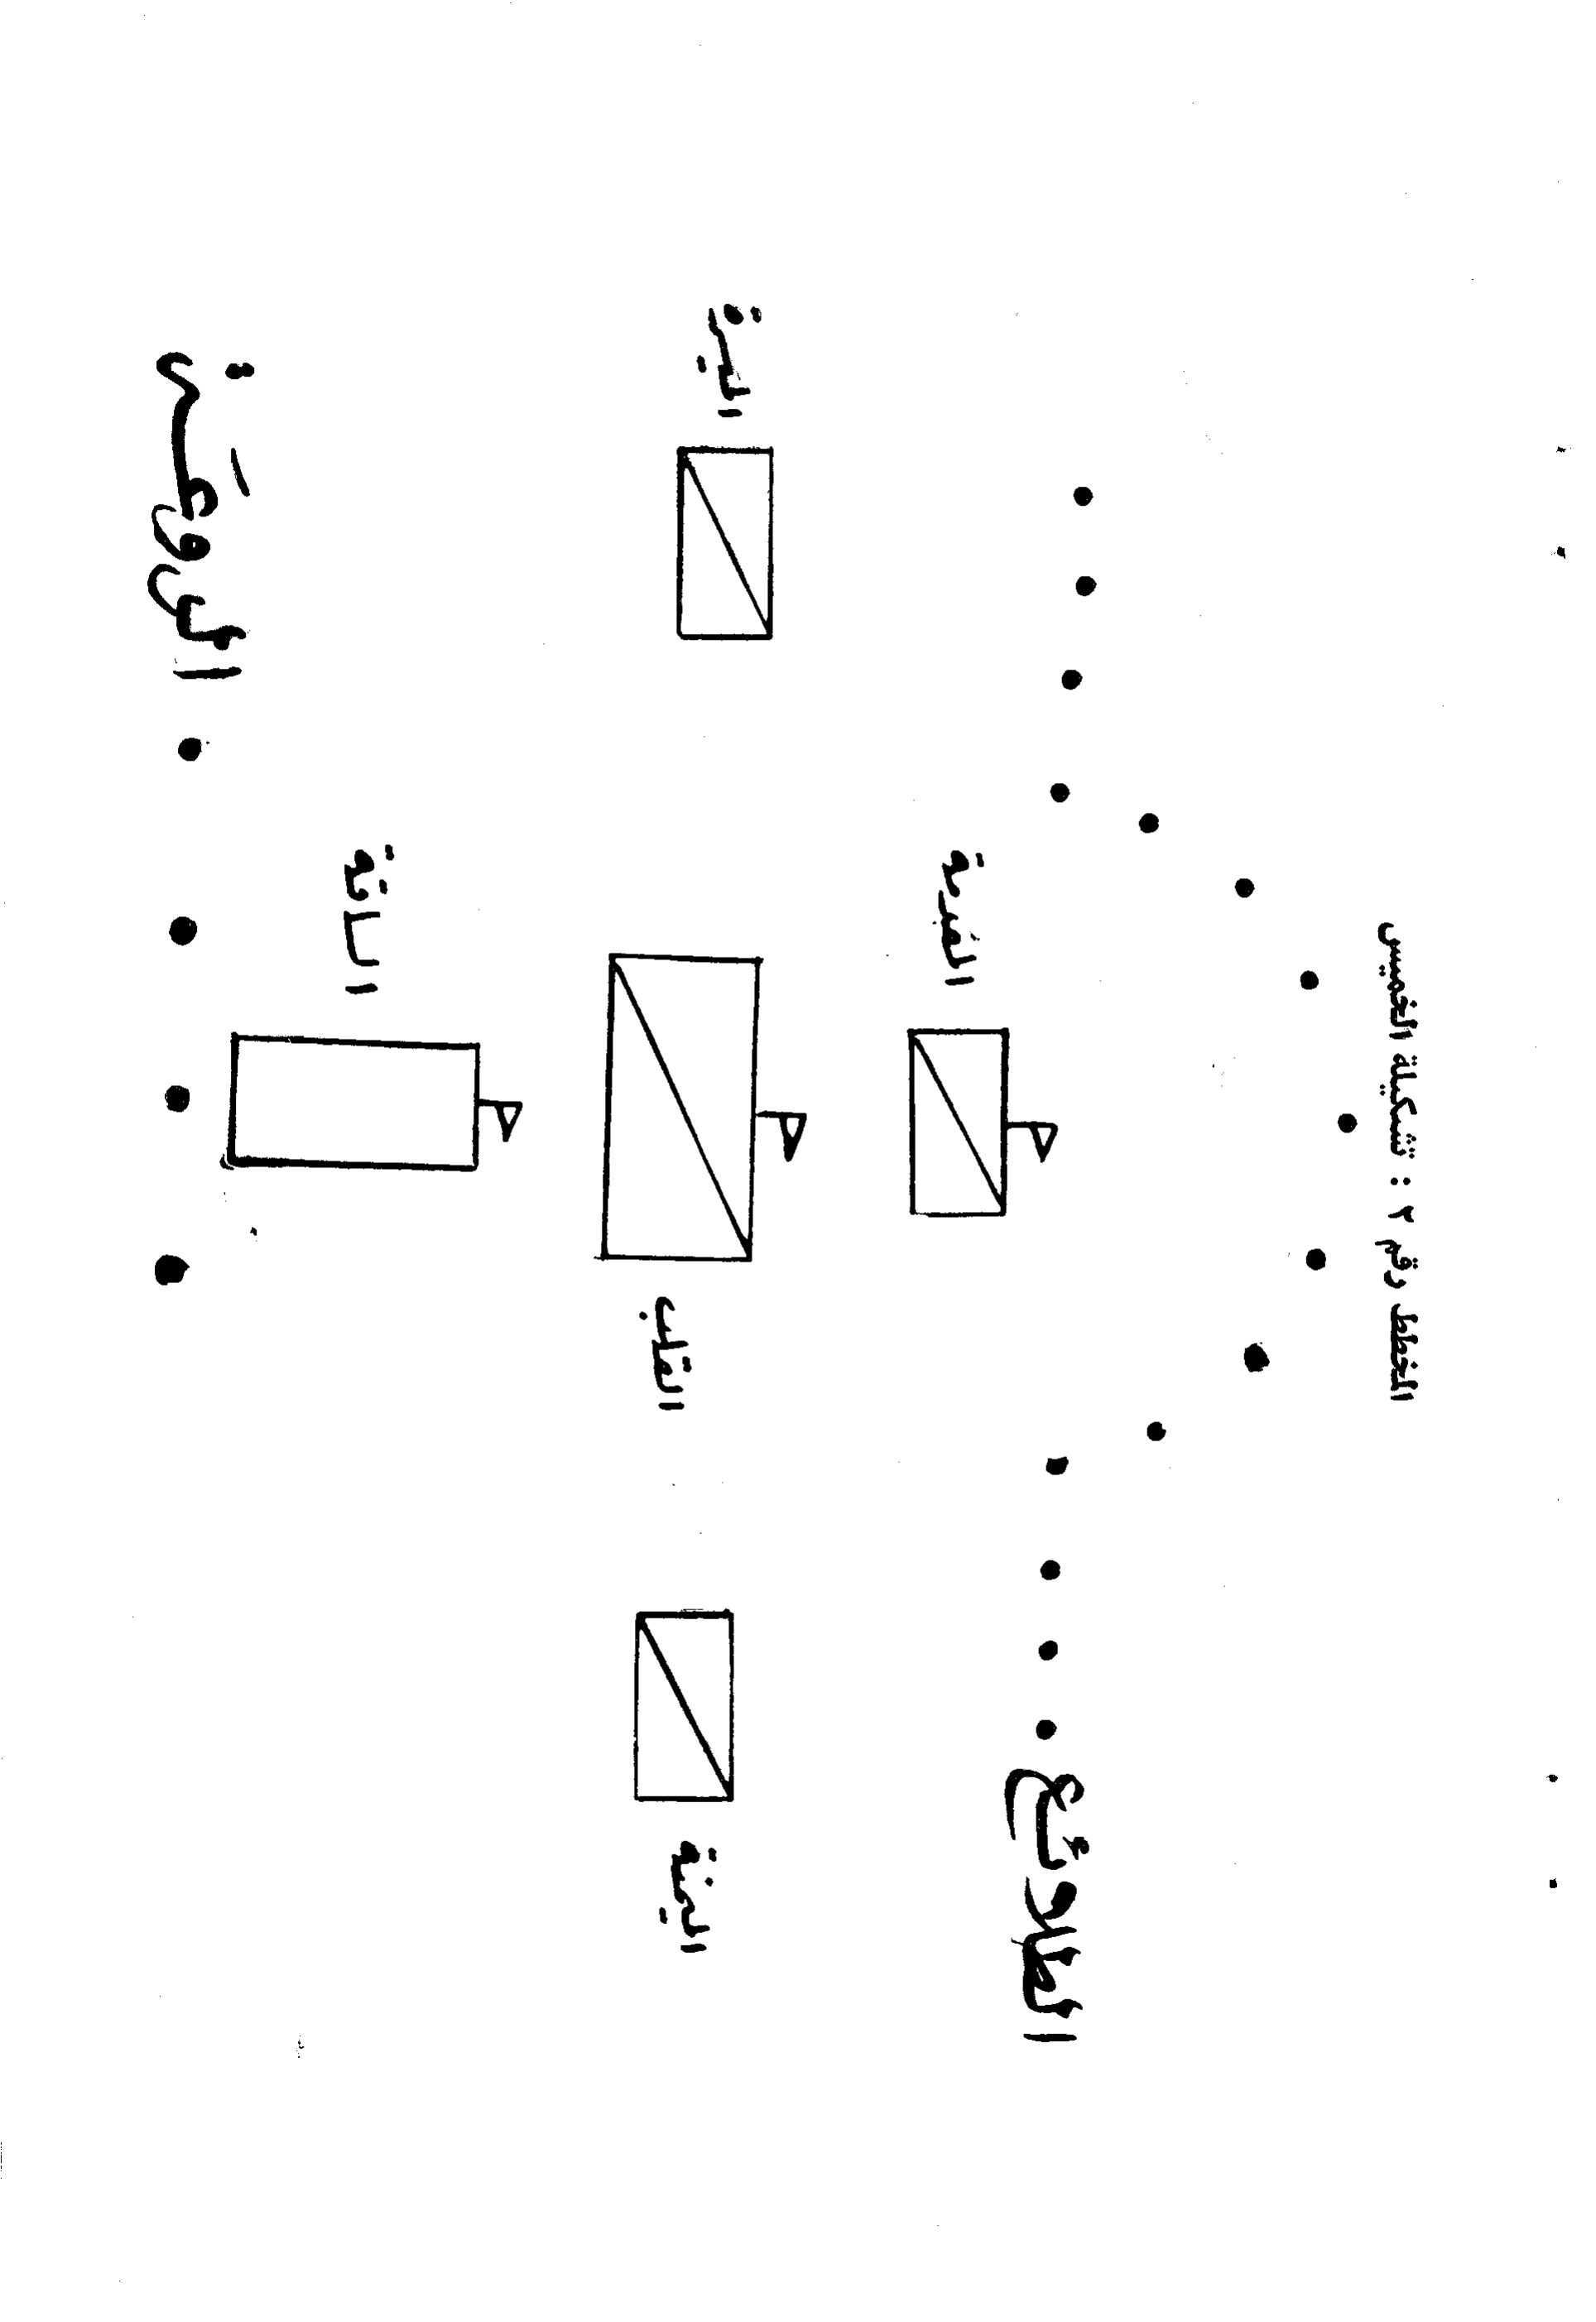 المخطط رقم ٢ : تشكيلة الخميس
الطلائع
المقدمة
الميمنة
القلب
الميسرة
الساقة